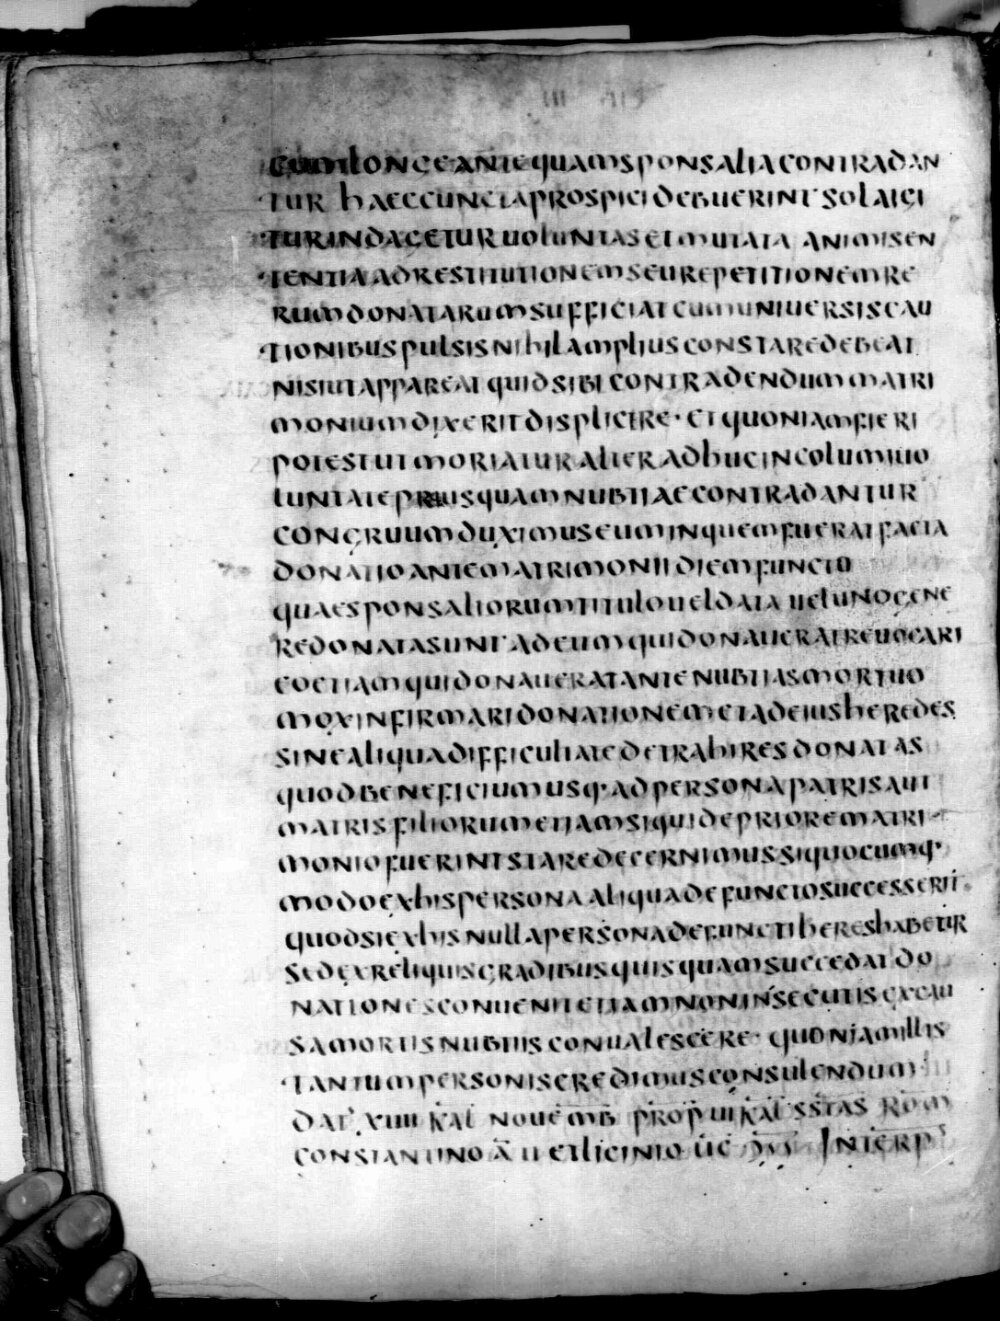 III · III
CUMLONGEANTEQUAMSPONSALIACONTRADAN
TUR HAECCUNCTAPROSPICIDEBUERINT SOLAIGI
TURINDAGETURUOLUNTASETMUTATA ANIMISEN
TENTIAADRESTITUTIONEMSEUREPETITIONEMRE
RUMDONATARUMSUFFICIATCUMUNIUERSISCAU
TIONIBUSPULSISNIHILAMPLIUSCONSTAREDEBEAT
NISIUTAPPAREAT QUIDSIBI CONTRADENDUMMATRI
MONIUMDIXERITDISPLICERE· ETQUONIAMFIERI
POTESTUTMORIATURALTERADHUCINCOLUMIUO
LUNTATEPRIUSQUAMNUBTIAECONTRADANTUR
CONGRUUMDUXIMUSEUMINQUEMFUERATFACTA
DONATIOANTEMATRIMONIIDIEMFUNCTO
QUAESPONSALIORUMTITULOUELDATA UELUNOGENE
REDONATASUNT ADEUMQUIDONAUERATREUOCARI
EOETIAMQUIDONAUERATANTENUBTIASMORTUO
MOXINFIRMARIDONATIONEMETADEIUSHEREDES
SINEALIQUADIFFICULTATEDETRAHIRESDONATAS
QUODBENEFICIUMUSQ·ADPERSONAPATRISAUT
MATRISFILIORUMETIAMSIQUIDEPRIOREMATRI
MONIOFUERINTSTAREDECERNIMUSSIQUOCUMQ·
MODOEXHISPERSONAALIQUADEFUNCTOSUCCESSERIT·
QUODSIEXHISNULLAPERSONADEFUNCTIHERESHABETUR
SEDEXRELIQUISGRADIBUSQUISQUAMSUCCEDATDO
NATIONESCONUENITETIAMNONINSECUTISEXCAU
SAMORTISNUBTIISCONUALESCERE· QUONIAMILLIS
TANTUMPERSONISCREDIMUSCONSULENDUM
DAT XIIII KAL NOUEMB PROP III KAL SSTAS ROM
CONSTANTINO A II ETLICINIO UC INTERP